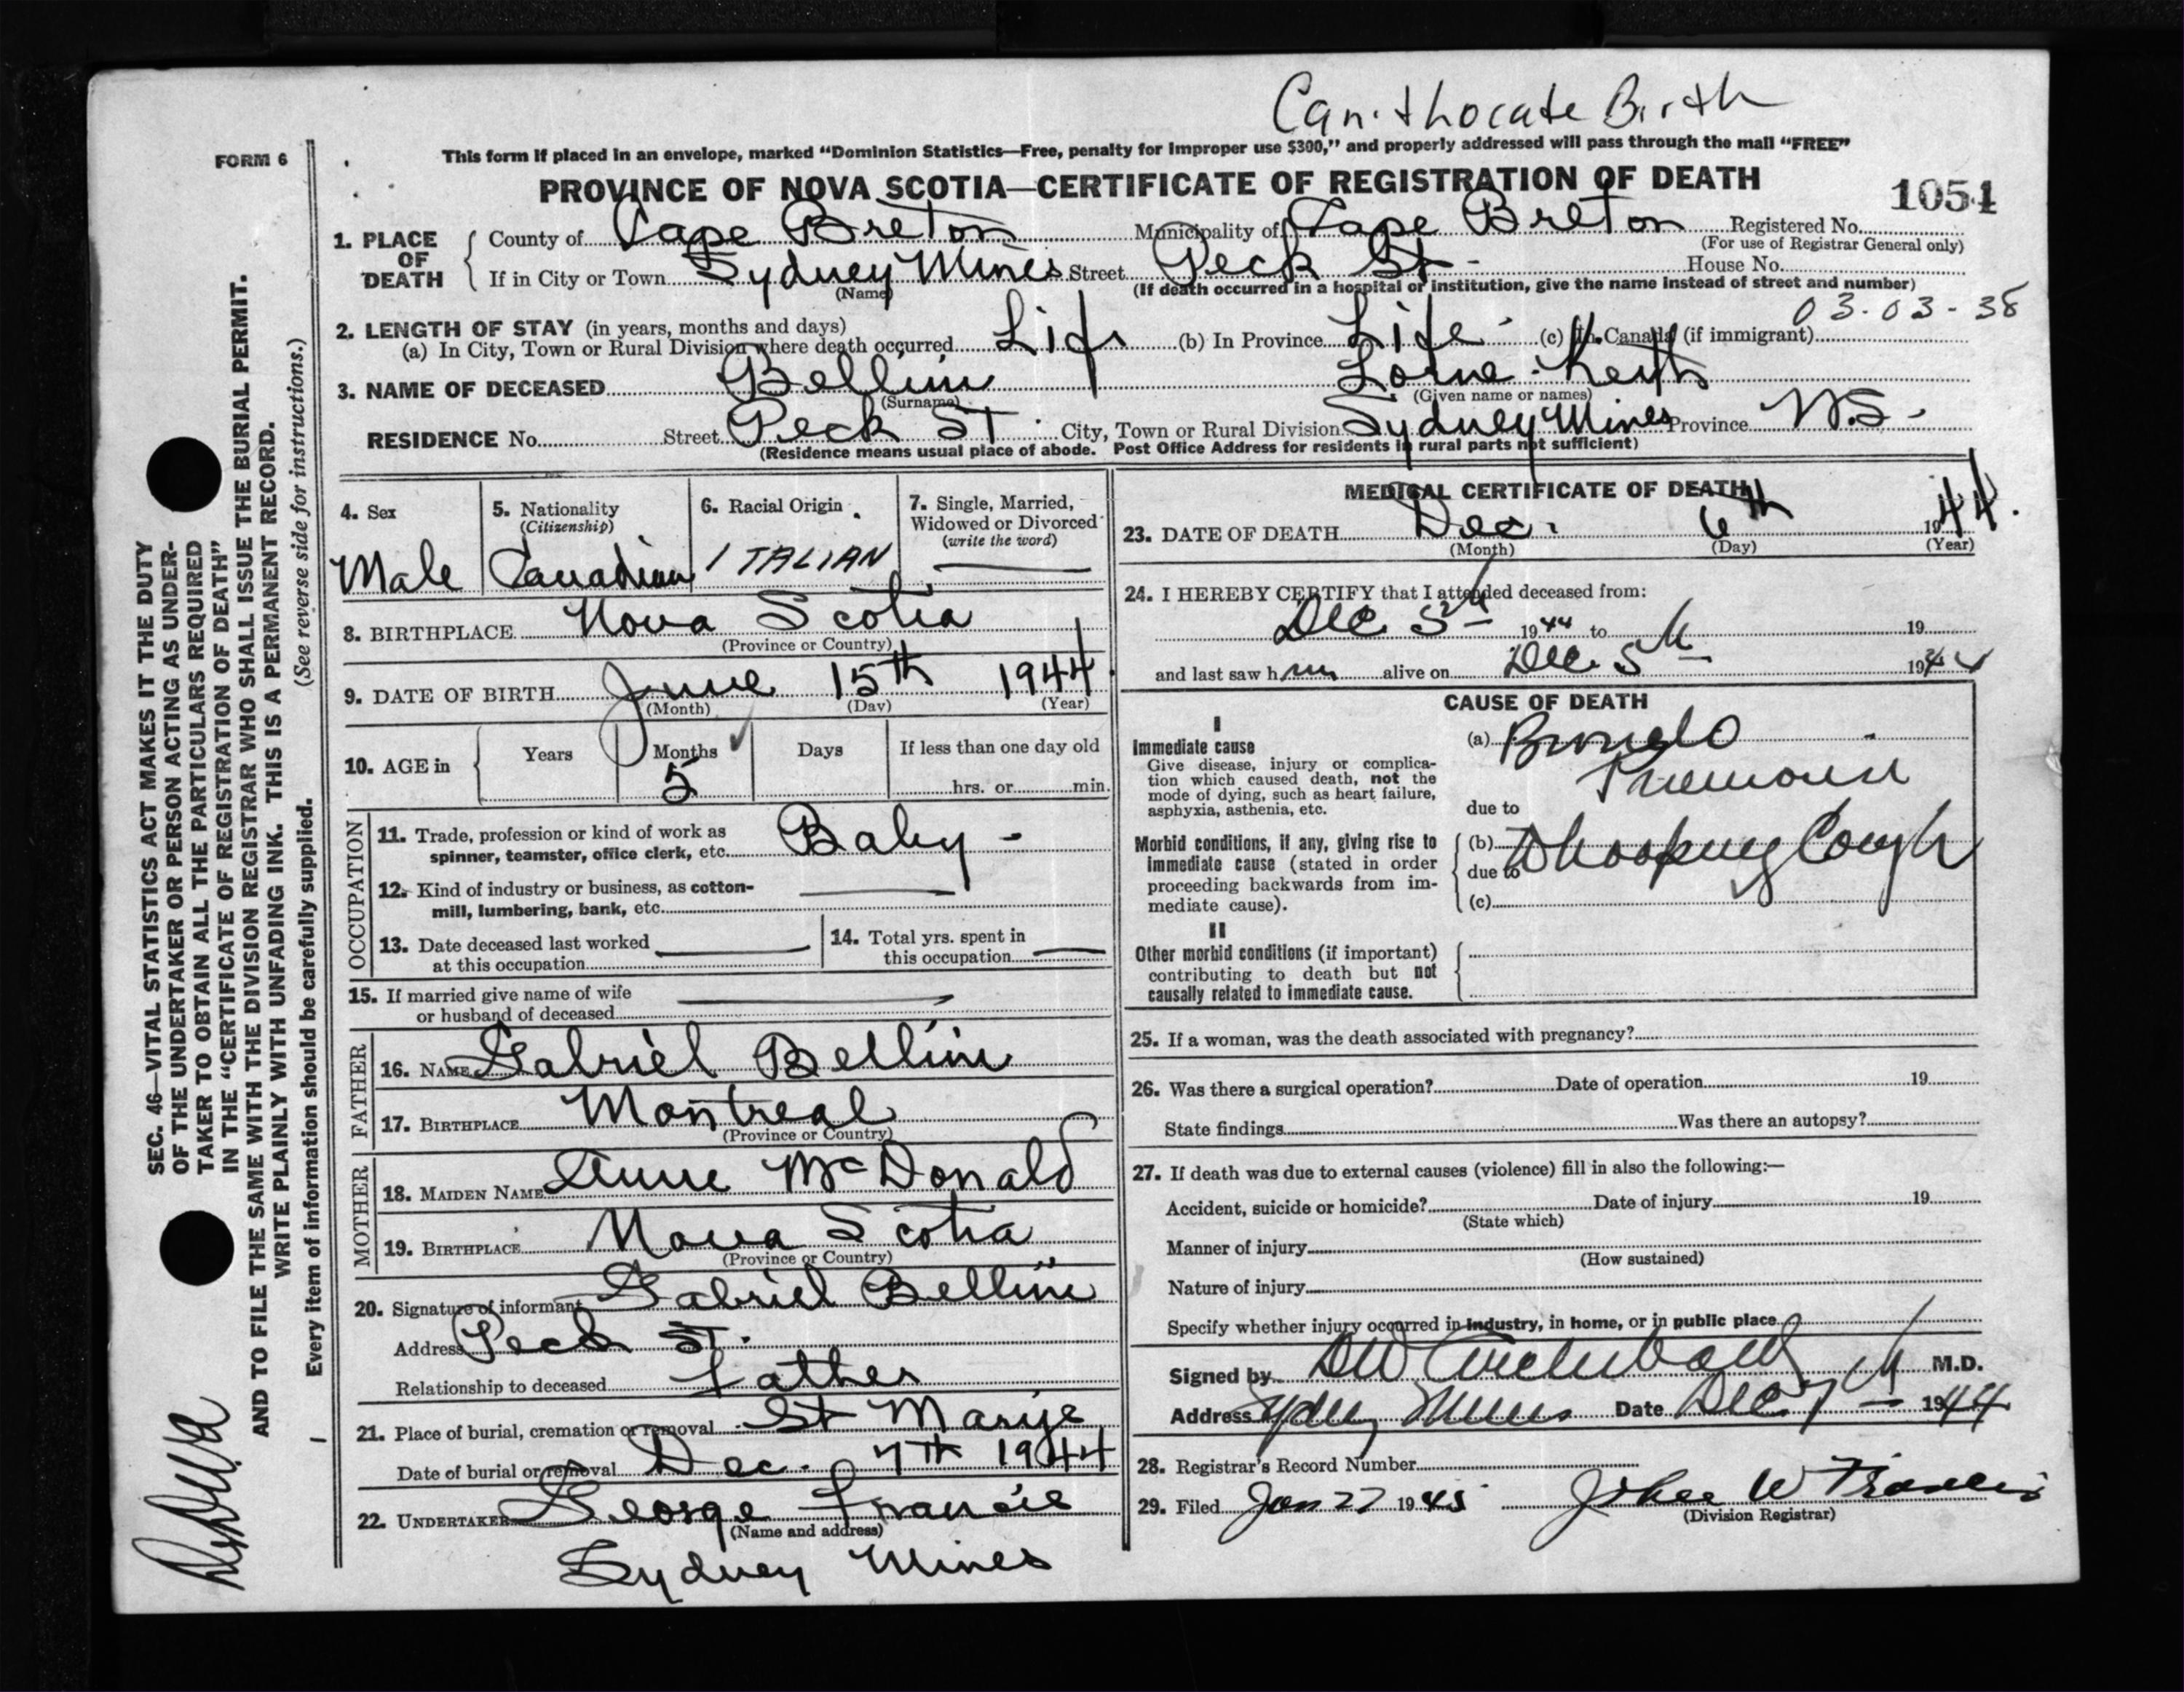 Can.t hocate Birth
FORM 6
This form if placed in an envelope, marked "Dominion Statistics—Free, penalty for improper use $300," and properly addressed will pass through the mail "FREE"
PROVINCE OF NOVA SCOTIA—CERTIFICATE OF REGISTRATION OF DEATH
1054
1. PLACE OF DEATH
County of Cape Breton Municipality of Cape Breton Registered No.
(For use of Registrar General only)
If in City or Town Sydney Mines Street Peck St. House No.
(Name) (If death occurred in a hospital or institution, give the name instead of street and number)
03-03-38
2. LENGTH OF STAY (in years, months and days)
(a) In City, Town or Rural Division where death occurred Life (b) In Province Life (c) In Canada (if immigrant)
3. NAME OF DECEASED Bellini Lorne Keith
(Surname) (Given name or names)
RESIDENCE No. Street Peck St. City, Town or Rural Division Sydney Mines Province N.S.
(Residence means usual place of abode. Post Office Address for residents in rural parts not sufficient)
4. Sex
Male
5. Nationality
(Citizenship)
Canadian
6. Racial Origin
ITALIAN
7. Single, Married,
Widowed or Divorced
(write the word)
8. BIRTHPLACE Nova Scotia
(Province or Country)
9. DATE OF BIRTH June 15th 1944
(Month) (Day) (Year)
10. AGE in Years Months Days If less than one day old
5 hrs. or min.
OCCUPATION
11. Trade, profession or kind of work as
spinner, teamster, office clerk, etc. Baby -
12. Kind of industry or business, as cotton-
mill, lumbering, bank, etc.
13. Date deceased last worked
at this occupation
14. Total yrs. spent in
this occupation
15. If married give name of wife
or husband of deceased
FATHER
16. NAME Gabriel Bellini
17. BIRTHPLACE Montreal
(Province or Country)
MOTHER
18. MAIDEN NAME Anne McDonald
19. BIRTHPLACE Nova Scotia
(Province or Country)
20. Signature of informant Gabriel Bellini
Address Peck St.
Relationship to deceased father
21. Place of burial, cremation or removal St Marys
Date of burial or removal Dec. 7th 1944
22. UNDERTAKER George Francis
(Name and address)
Sydney Mines
MEDICAL CERTIFICATE OF DEATH
23. DATE OF DEATH Dec. 6th 1944.
(Month) (Day) (Year)
24. I HEREBY CERTIFY that I attended deceased from:
Dec 5th 1944 to 19
and last saw him alive on Dec 5th 1944
CAUSE OF DEATH
I
Immediate cause
Give disease, injury or complica-
tion which caused death, not the
mode of dying, such as heart failure,
asphyxia, asthenia, etc.
(a) Broncho
Pneumonia
due to
Morbid conditions, if any, giving rise to
immediate cause (stated in order
proceeding backwards from im-
mediate cause).
(b) Whooping Cough
due to
(c)
II
Other morbid conditions (if important)
contributing to death but not
causally related to immediate cause.
25. If a woman, was the death associated with pregnancy?
26. Was there a surgical operation? Date of operation 19
State findings Was there an autopsy?
27. If death was due to external causes (violence) fill in also the following:—
Accident, suicide or homicide? Date of injury 19
(State which)
Manner of injury
(How sustained)
Nature of injury
Specify whether injury occurred in industry, in home, or in public place
Signed by DW Archibald M.D.
Address Sydney Mines Date Dec 7th 1944
28. Registrar's Record Number
29. Filed Jan 27 1945 W Francis
(Division Registrar)
SEC. 46—VITAL STATISTICS ACT MAKES IT THE DUTY
OF THE UNDERTAKER OR PERSON ACTING AS UNDER-
TAKER TO OBTAIN ALL THE PARTICULARS REQUIRED
IN THE "CERTIFICATE OF REGISTRATION OF DEATH"
AND TO FILE THE SAME WITH THE DIVISION REGISTRAR WHO SHALL ISSUE THE BURIAL PERMIT.
WRITE PLAINLY WITH UNFADING INK. THIS IS A PERMANENT RECORD.
Every item of information should be carefully supplied. (See reverse side for instructions.)